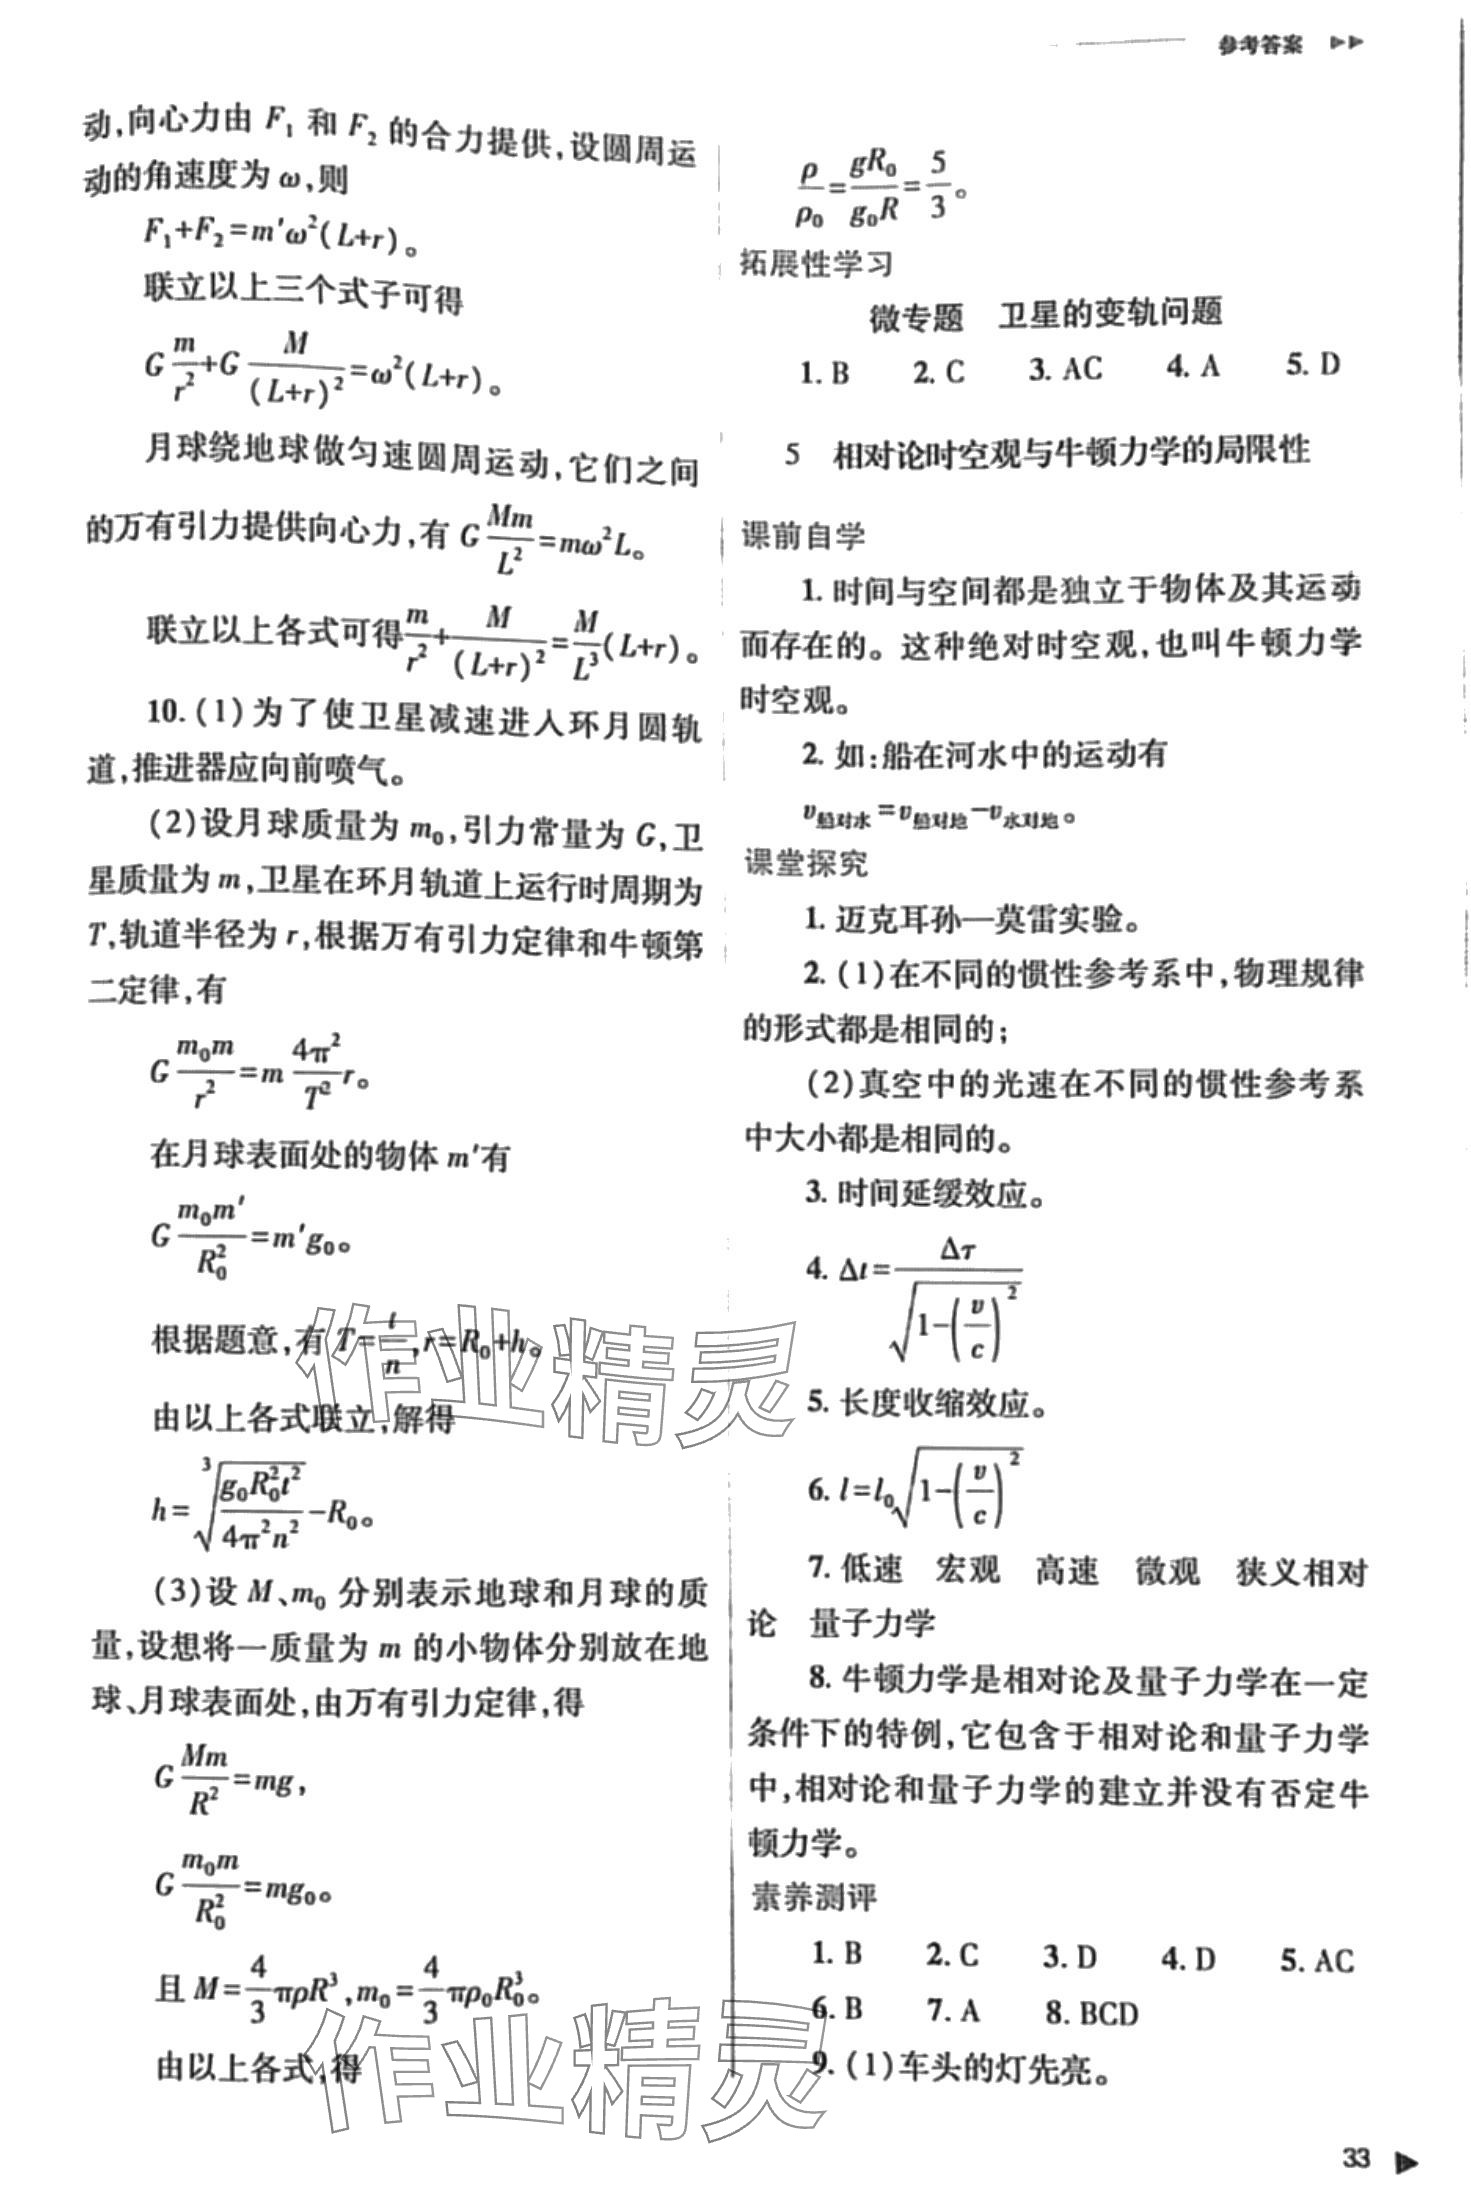 参考答案
动,向心力由 F₁ 和 F₂ 的合力提供,设圆周运
动的角速度为 ω,则
F₁+F₂=m′ω²(L+r)。
联立以上三个式子可得
G m/r²+G M/(L+r)²=ω²(L+r)。
月球绕地球做匀速圆周运动,它们之间
的万有引力提供向心力,有 G Mm/L²=mω²L。
联立以上各式可得 m/r²+M/(L+r)²=M/L³(L+r)。
10.(1)为了使卫星减速进入环月圆轨
道,推进器应向前喷气。
(2)设月球质量为 m₀,引力常量为 G,卫
星质量为 m,卫星在环月轨道上运行时周期为
T,轨道半径为 r,根据万有引力定律和牛顿第
二定律,有
G m₀m/r²=m 4π²/T² r。
在月球表面处的物体 m′有
G m₀m′/R₀²=m′g₀。
根据题意,有 T=t/n,r=R₀+h。
由以上各式联立,解得
h=∛(g₀R₀²t²/4π²n²)-R₀。
(3)设 M、m₀ 分别表示地球和月球的质
量,设想将一质量为 m 的小物体分别放在地
球、月球表面处,由万有引力定律,得
G Mm/R²=mg,
G m₀m/R₀²=mg₀。
且 M=4/3πρR³,m₀=4/3πρ₀R₀³。
由以上各式,得
ρ/ρ₀=gR₀/g₀R=5/3。
拓展性学习
微专题 卫星的变轨问题
1. B 2. C 3. AC 4. A 5. D
5 相对论时空观与牛顿力学的局限性
课前自学
1. 时间与空间都是独立于物体及其运动
而存在的。这种绝对时空观,也叫牛顿力学
时空观。
2. 如:船在河水中的运动有
v船对水=v船对地-v水对地。
课堂探究
1. 迈克耳孙—莫雷实验。
2. (1)在不同的惯性参考系中,物理规律
的形式都是相同的;
(2)真空中的光速在不同的惯性参考系
中大小都是相同的。
3. 时间延缓效应。
4. Δt=Δτ/√(1-(v/c)²)
5. 长度收缩效应。
6. l=l₀√(1-(v/c)²)
7. 低速 宏观 高速 微观 狭义相对
论 量子力学
8. 牛顿力学是相对论及量子力学在一定
条件下的特例,它包含于相对论和量子力学
中,相对论和量子力学的建立并没有否定牛
顿力学。
素养测评
1. B 2. C 3. D 4. D 5. AC
6. B 7. A 8. BCD
9. (1)车头的灯先亮。
33
作业精灵
作业精灵